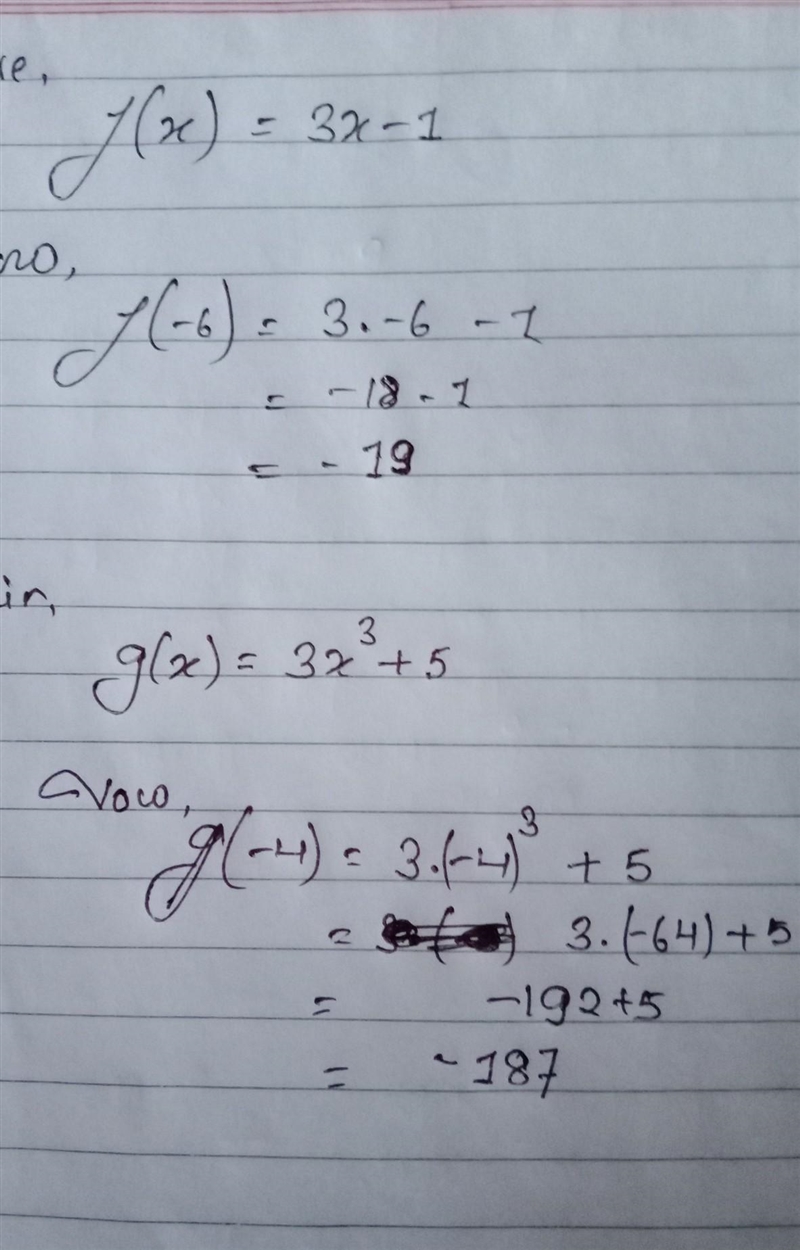 re,
f(x) = 3x-1
no,
f(-6) = 3.-6 -1
= -18-1
= -19
in,
g(x) = 3x³+5
Now,
g(-4) = 3.(-4)³ + 5
= 3.(-64)+5
= -192+5
= -187